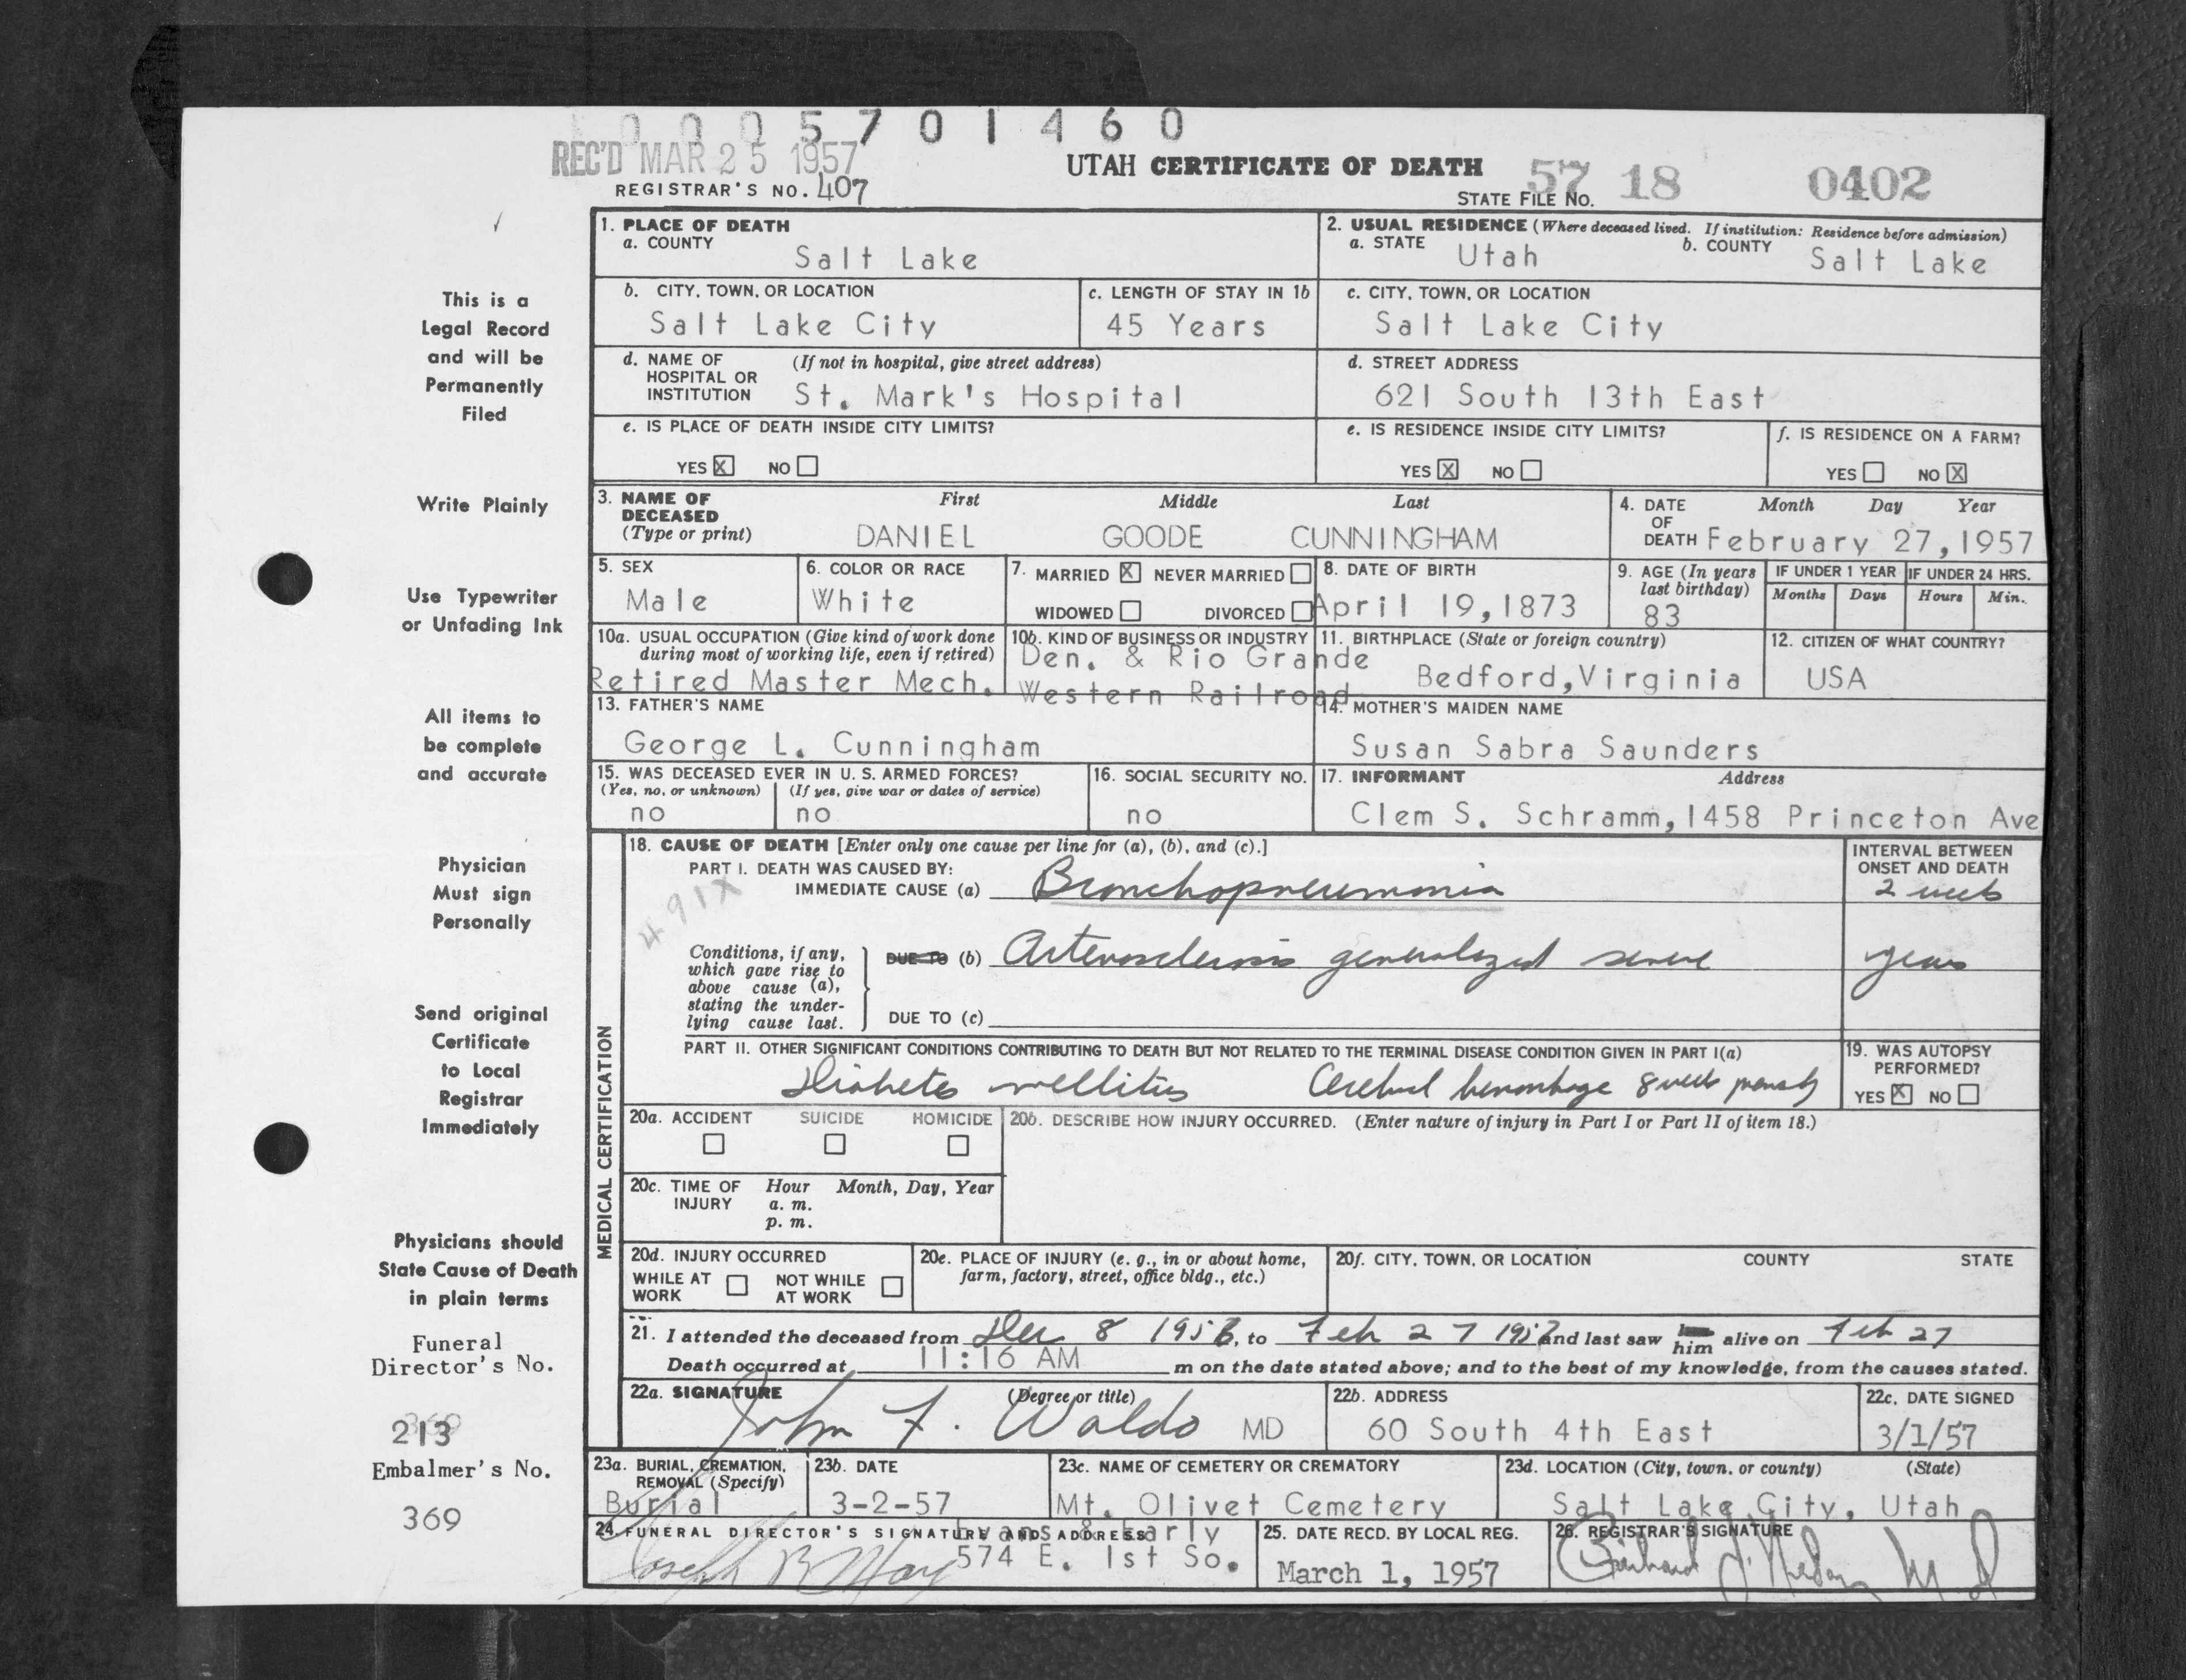 0005701460
REC'D MAR 25 1957
UTAH CERTIFICATE OF DEATH
REGISTRAR'S NO. 407
STATE FILE NO. 57 18 0402
This is a
Legal Record
and will be
Permanently
Filed
Write Plainly
Use Typewriter
or Unfading Ink
All items to
be complete
and accurate
Physician
Must sign
Personally
Send original
Certificate
to Local
Registrar
Immediately
Physicians should
State Cause of Death
in plain terms
Funeral
Director's No.
213
Embalmer's No.
369
1. PLACE OF DEATH
a. COUNTY
Salt Lake
2. USUAL RESIDENCE (Where deceased lived. If institution: Residence before admission)
a. STATE Utah b. COUNTY Salt Lake
b. CITY, TOWN, OR LOCATION
Salt Lake City
c. LENGTH OF STAY IN 1b
45 Years
c. CITY, TOWN, OR LOCATION
Salt Lake City
d. NAME OF (If not in hospital, give street address)
HOSPITAL OR
INSTITUTION St. Mark's Hospital
d. STREET ADDRESS
621 South 13th East
e. IS PLACE OF DEATH INSIDE CITY LIMITS?
YES X NO
e. IS RESIDENCE INSIDE CITY LIMITS?
YES X NO
f. IS RESIDENCE ON A FARM?
YES NO X
3. NAME OF First Middle Last
DECEASED
(Type or print) DANIEL GOODE CUNNINGHAM
4. DATE Month Day Year
OF
DEATH February 27, 1957
5. SEX
Male
6. COLOR OR RACE
White
7. MARRIED X NEVER MARRIED
WIDOWED DIVORCED
8. DATE OF BIRTH
April 19, 1873
9. AGE (In years
last birthday)
83
IF UNDER 1 YEAR
Months Days
IF UNDER 24 HRS.
Hours Min.
10a. USUAL OCCUPATION (Give kind of work done
during most of working life, even if retired)
Retired Master Mech.
10b. KIND OF BUSINESS OR INDUSTRY
Den. & Rio Grande
Western Railroad
11. BIRTHPLACE (State or foreign country)
Bedford, Virginia
12. CITIZEN OF WHAT COUNTRY?
USA
13. FATHER'S NAME
George L. Cunningham
14. MOTHER'S MAIDEN NAME
Susan Sabra Saunders
15. WAS DECEASED EVER IN U. S. ARMED FORCES?
(Yes, no, or unknown) (If yes, give war or dates of service)
no no
16. SOCIAL SECURITY NO.
no
17. INFORMANT Address
Clem S. Schramm, 1458 Princeton Ave
MEDICAL CERTIFICATION
18. CAUSE OF DEATH [Enter only one cause per line for (a), (b), and (c).]
PART I. DEATH WAS CAUSED BY:
IMMEDIATE CAUSE (a) Bronchopneumonia
491X
INTERVAL BETWEEN
ONSET AND DEATH
2 weeks
Conditions, if any,
which gave rise to
above cause (a),
stating the under-
lying cause last.
DUE TO (b) Arteriosclerosis generalized severe
years
DUE TO (c)
PART II. OTHER SIGNIFICANT CONDITIONS CONTRIBUTING TO DEATH BUT NOT RELATED TO THE TERMINAL DISEASE CONDITION GIVEN IN PART I(a)
Diabetes mellitus Cerebral hemorrhage 8 weeks
19. WAS AUTOPSY
PERFORMED?
YES X NO
20a. ACCIDENT SUICIDE HOMICIDE
20b. DESCRIBE HOW INJURY OCCURRED. (Enter nature of injury in Part I or Part II of item 18.)
20c. TIME OF Hour Month, Day, Year
INJURY a. m.
p. m.
20d. INJURY OCCURRED
WHILE AT NOT WHILE
WORK AT WORK
20e. PLACE OF INJURY (e. g., in or about home,
farm, factory, street, office bldg., etc.)
20f. CITY, TOWN, OR LOCATION COUNTY STATE
21. I attended the deceased from Dec 8 1956, to Feb 27 1957 and last saw him alive on Feb 27
Death occurred at 11:16 AM m on the date stated above; and to the best of my knowledge, from the causes stated.
22a. SIGNATURE (Degree or title)
John F. Waldo MD
22b. ADDRESS
60 South 4th East
22c. DATE SIGNED
3/1/57
23a. BURIAL, CREMATION,
REMOVAL (Specify)
Burial
23b. DATE
3-2-57
23c. NAME OF CEMETERY OR CREMATORY
Mt. Olivet Cemetery
23d. LOCATION (City, town, or county) (State)
Salt Lake City, Utah
24. FUNERAL DIRECTOR'S SIGNATURE AND ADDRESS
Evans & Early
574 E. 1st So.
25. DATE RECD. BY LOCAL REG.
March 1, 1957
26. REGISTRAR'S SIGNATURE